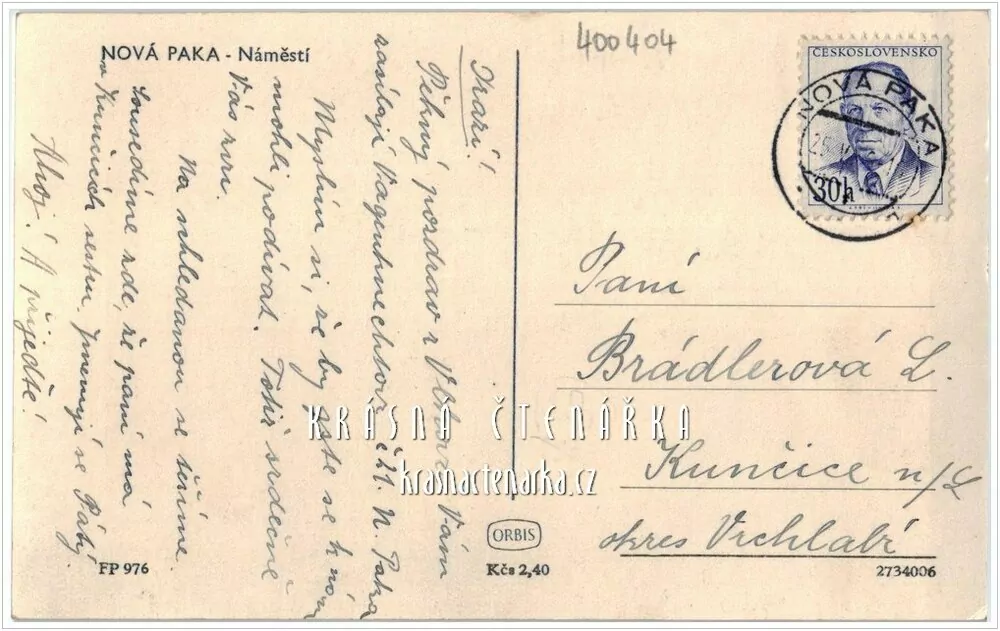 NOVÁ PAKA - Náměstí
400404
ČESKOSLOVENSKO
NOVÁ PAKA
30h
Drazí!
Pěkný pozdrav z Vám
zasílají čk1. N. Paka
Myslím si, že by jste se k nám
mohli podívat. Totiž srdečně
Vás zvu.
Na shledanou se těšíme.
Sousedíme zde, že paní má
v Kunčicích sestru. Jmenují se
Ahoj! A přijeďte!
Paní
Brádlerová L.
Kunčice n/L
okres Vrchlabí
KRÁSNÁ ČTENÁŘKA
krasnactenarka.cz
FP 976
ORBIS
Kčs 2,40
2734006